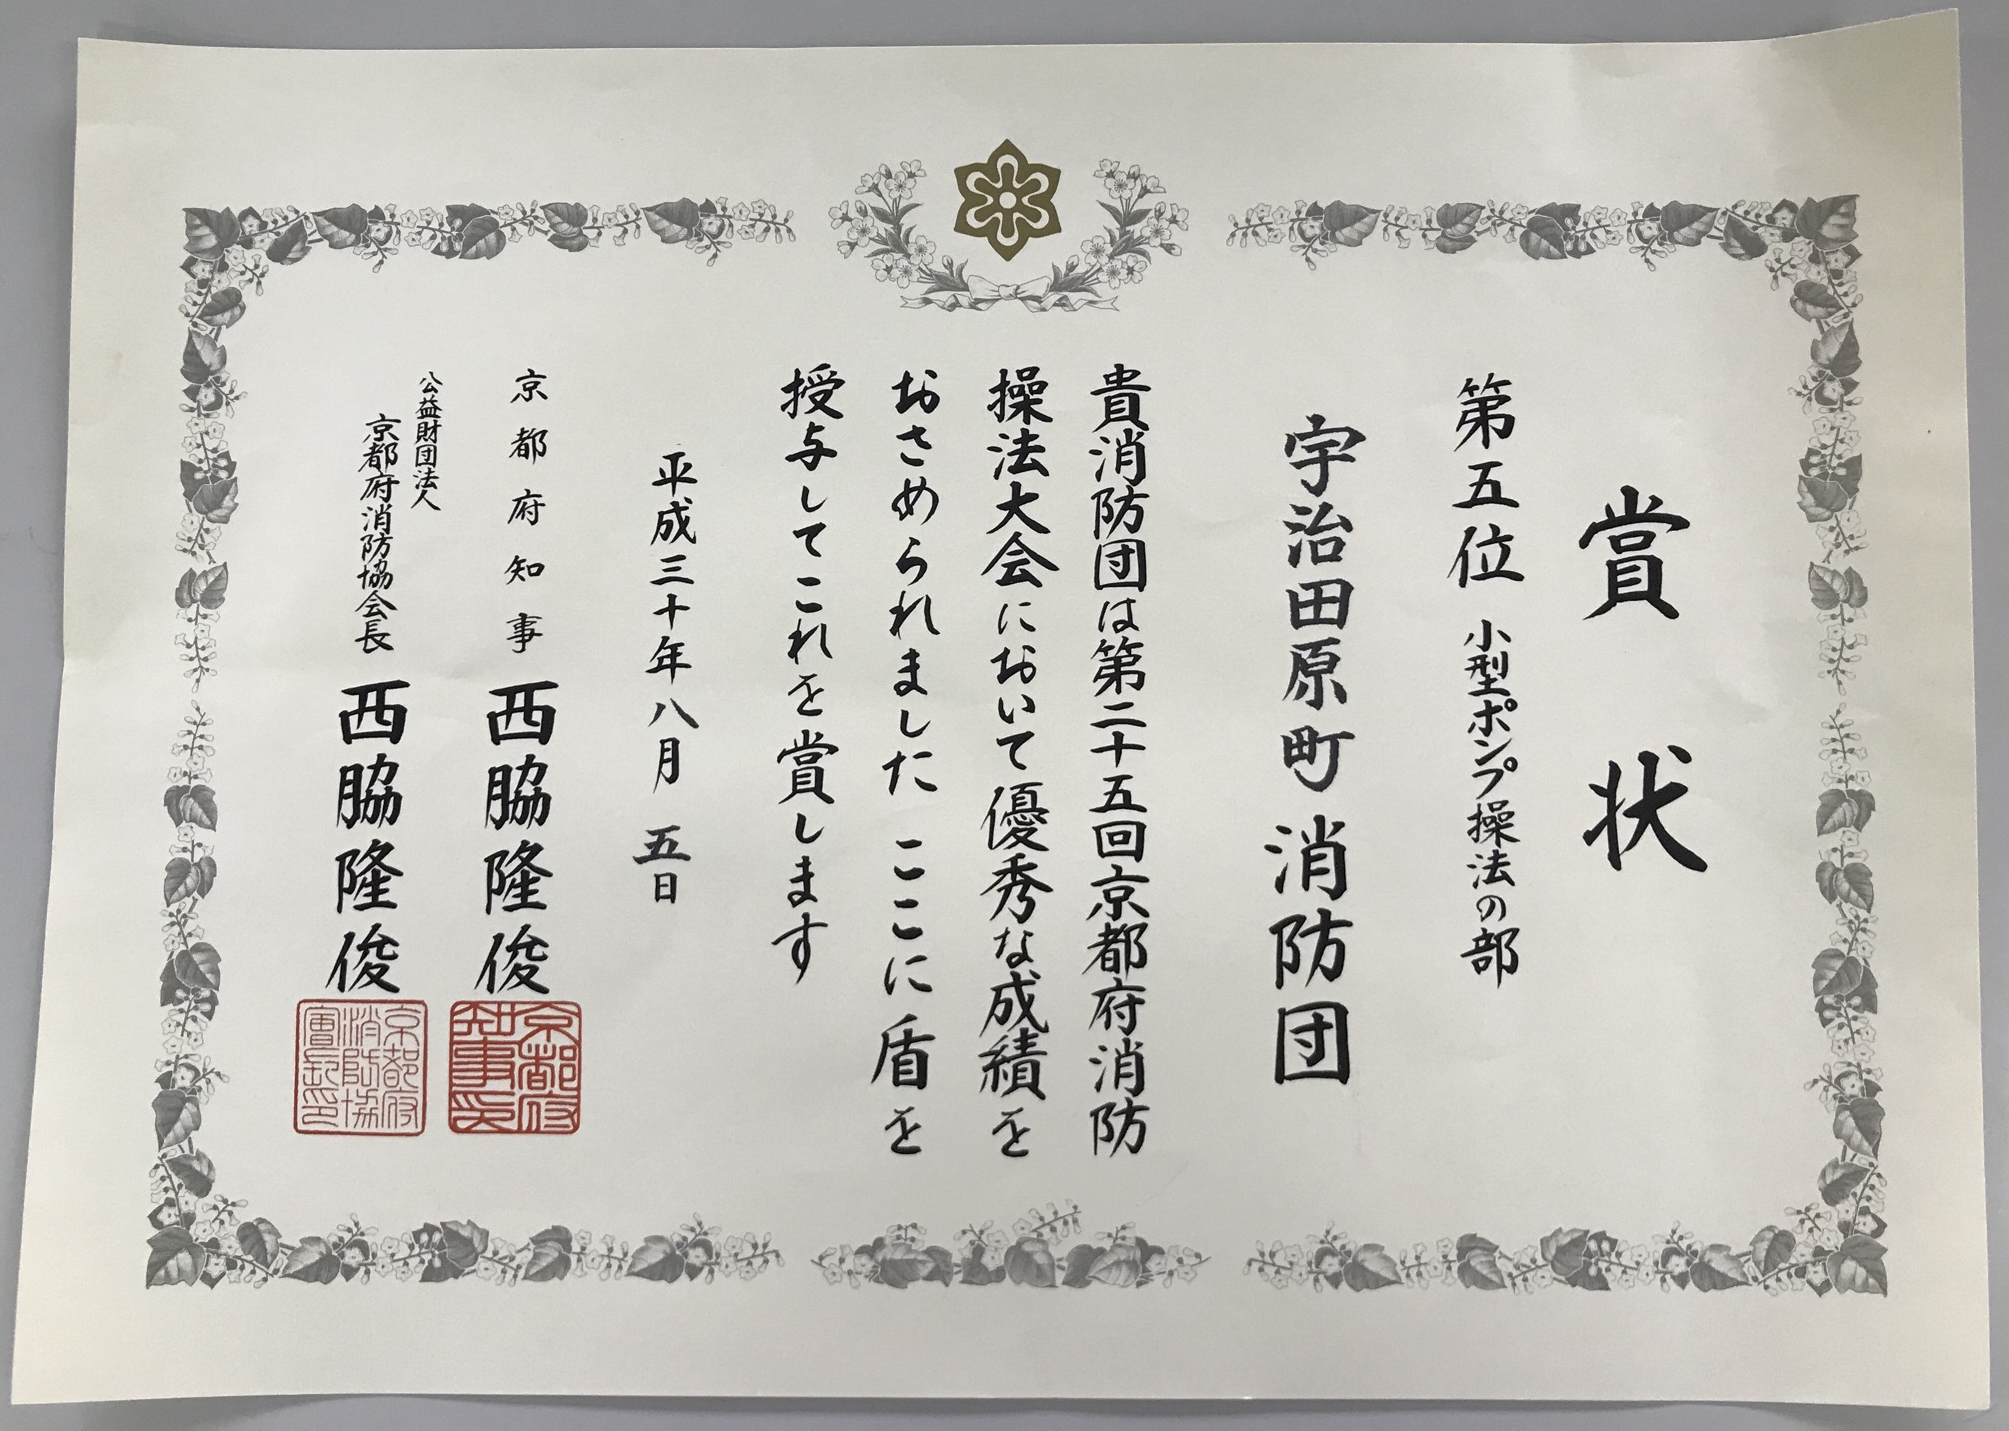 賞状
第五位 小型ポンプ操法の部
宇治田原町消防団
貴消防団は第二十五回京都府消防
操法大会において優秀な成績を
おさめられました ここに盾を
授与してこれを賞します
平成三十年八月 五日
京都府知事 西脇隆俊
京都府知事印
公益財団法人
京都府消防協会長 西脇隆俊
京都府消防協會長印